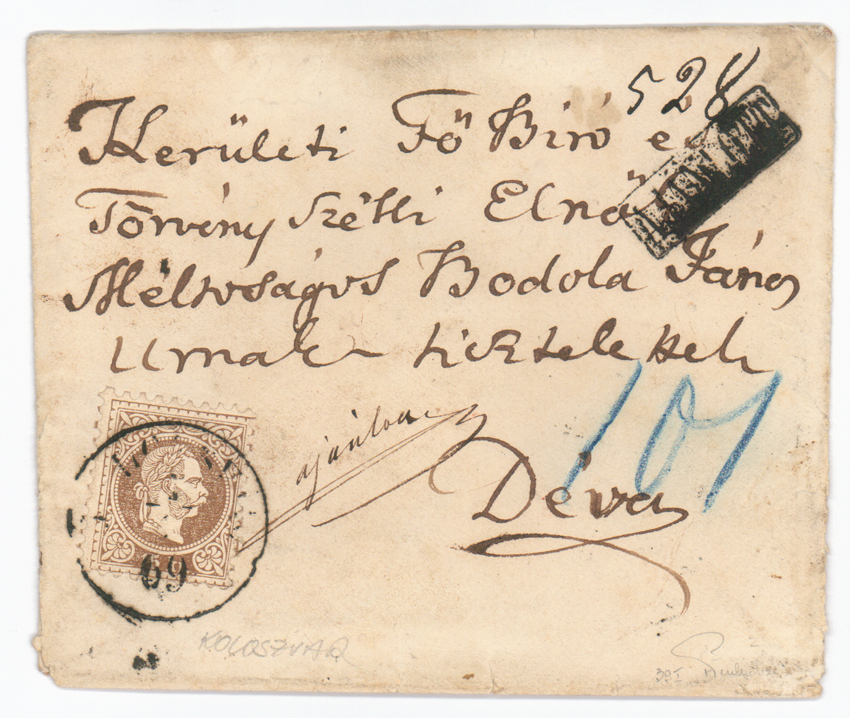 528
Kerületi Fő Biró es
Törvény Székli Elnö
Méltoságos Bodola János
Urnak tisztelettel
ajánlva
101
Déva
69
KOLOSZVAR
39I